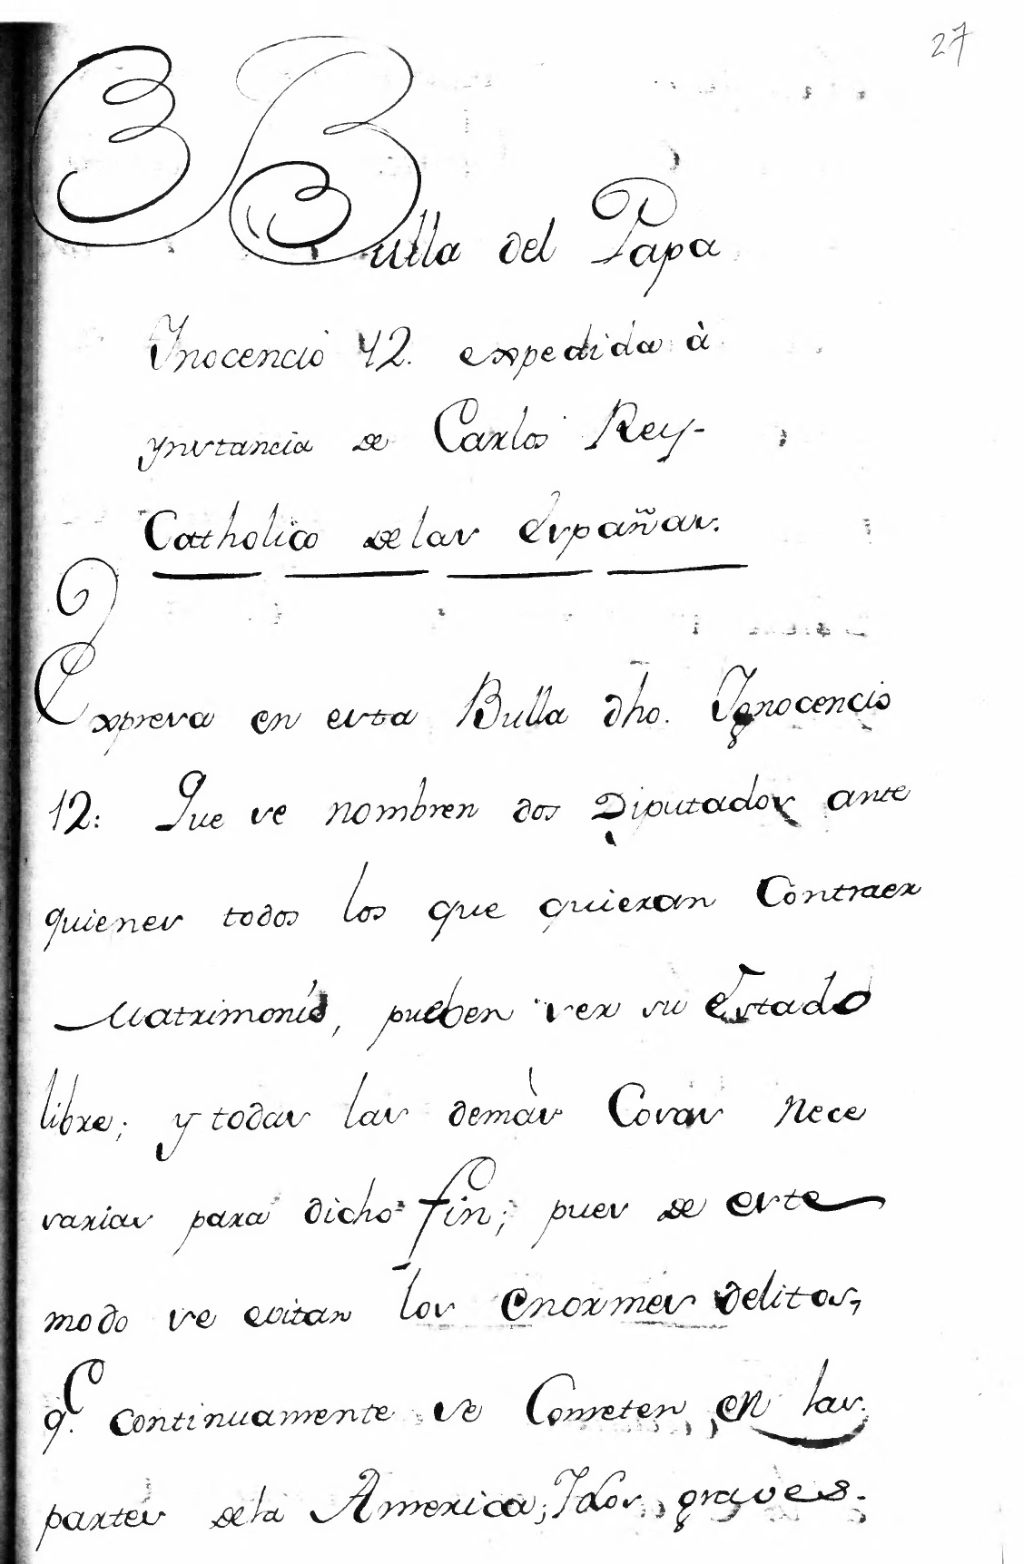 27
Bulla del Papa
Inocencio 12. expedida à
ynstancia de Carlos Rey-
Catholico de las españas.
Expresa en esta Bulla dho. Ignocencio
12: Que se nombren dos Diputados ante
quienes todos los que quieran Contraer
Matrimonio, prueben ser su estado
libre; y todas las demàs Cosas nece
sarias para dicho fin; pues de este
modo se evitan los enormes delitos,
q.e continuamente se Cometen en las
partes de la America; Ydos graves.